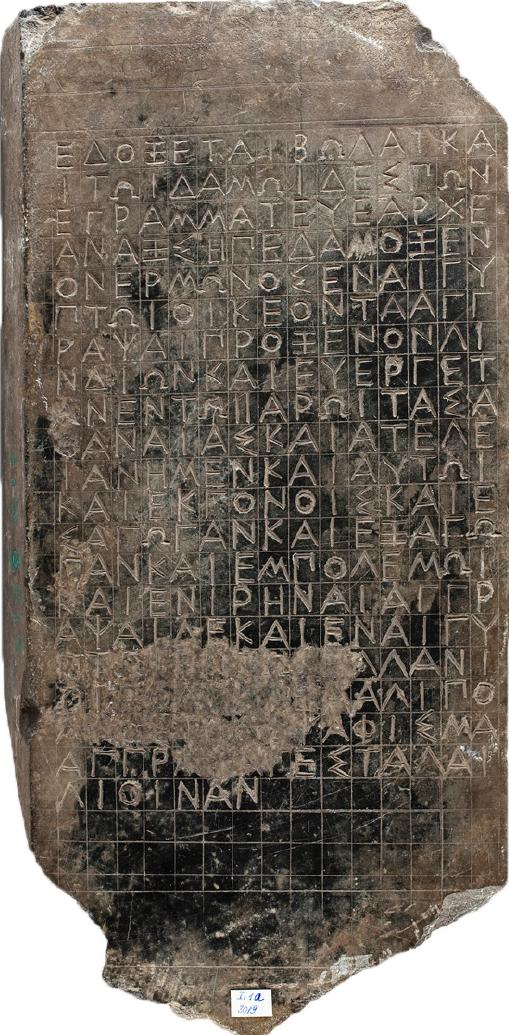 ΕΔΟΞΕΤΑΙΒΩΛΑΙΚΑ
ΙΤΩΙΔΑΜΩΙΔΕΣΠΩΝ
ΕΓΡΑΜΜΑΤΕΥΕΑΡΧΕ
ΑΝΑΞΣΗΠΕΔΑΜΟΞΕΝ
ΟΝΕΡΜΩΝΟΣΕΝΑΙΓΥ
ΠΤΩΙΟΙΚΕΟΝΤΑΑΓΓ
ΡΑΨΑΙΠΡΟΞΕΝΟΝΛΙ
ΝΔΙΩΝΚΑΙΕΥΕΡΓΕΤ
ΑΝΕΝΤΩΙΙΑΡΩΙΤΑΣΑ
ΘΑΝΑΙΑΣΚΑΙΑΤΕΛΕ
ΙΑΝΗΜΕΝΚΑΙΑΥΤΩΙ
ΚΑΙΕΚΓΟΝΟΙΣΚΑΙΕ
ΣΑΓΩΓΑΝΚΑΙΕΞΑΓΩ
ΓΑΝΚΑΙΕΜΠΟΛΕΜΩΙ
ΚΑΙΕΝΙΡΗΝΑΙΑΓΓΡ
ΑΨΑΙΔΕΚΑΙΕΝΑΙΓΥ
ΛΛΑΝΙ
ΑΛΙΠΟ
ΑΦΙΣΜΑ
ΑΓΓΡ ΕΣΤΑΛΑΝ
ΛΙΘΙΝΑΝ
I.1a
3019